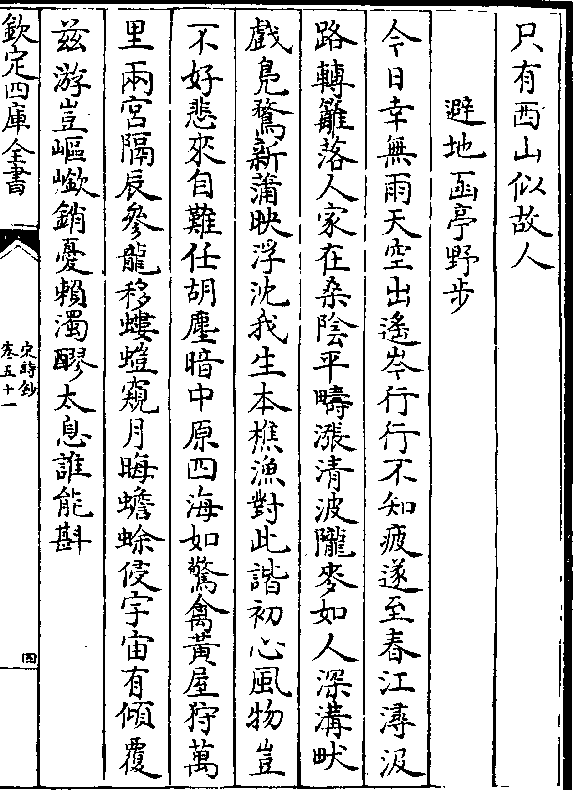 只有西山似故人
避地函亭野步
今日幸無雨天空出遙岑行行不知疲遂至春江潯汲
路轉籬落人家在桑陰平疇漲清波隴麥如人深溝畎
戲鳧鶩新蒲映浮沈我生本樵漁對此諧初心風物豈
不好悲來自難任胡塵暗中原四海如驚禽黃屋狩萬
里兩宮隔辰參龍移螻螘窺月晦蟾蜍侵宇宙有傾覆
兹游豈嶇嶔銷憂賴濁醪太息誰能斟
欽定四庫全書
宋詩鈔
卷五十一
四